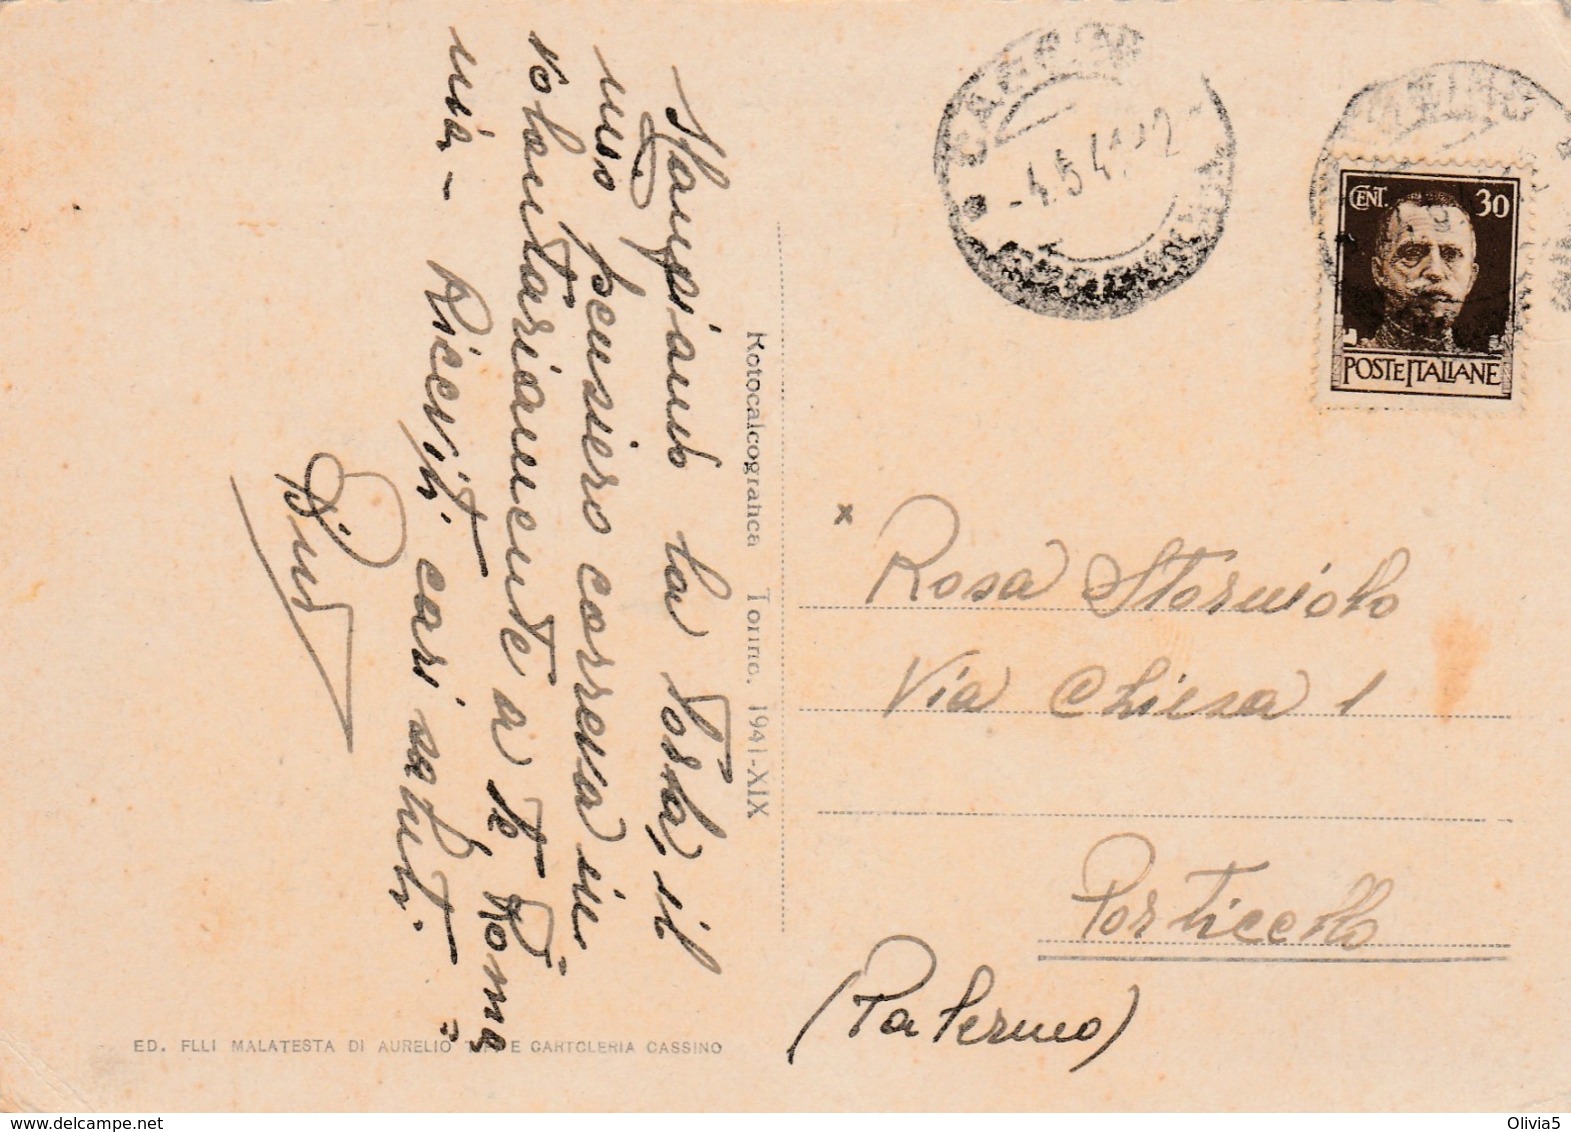 Stampiamo la posta, il
mio pensiero correva in
volontariamente a te, Roma
mia - Riceviti cari saluti.
Rotocalcografica Torino, 1941-XIX
ED. FLLI MALATESTA DI AURELIO TIP. E CARTOLERIA CASSINO
CASSINO
-4.5.41
CENT. 30
POSTE ITALIANE
x
Rosa Storniolo
Via Chiesa 1
Porticello
(Palermo)
Olivia5